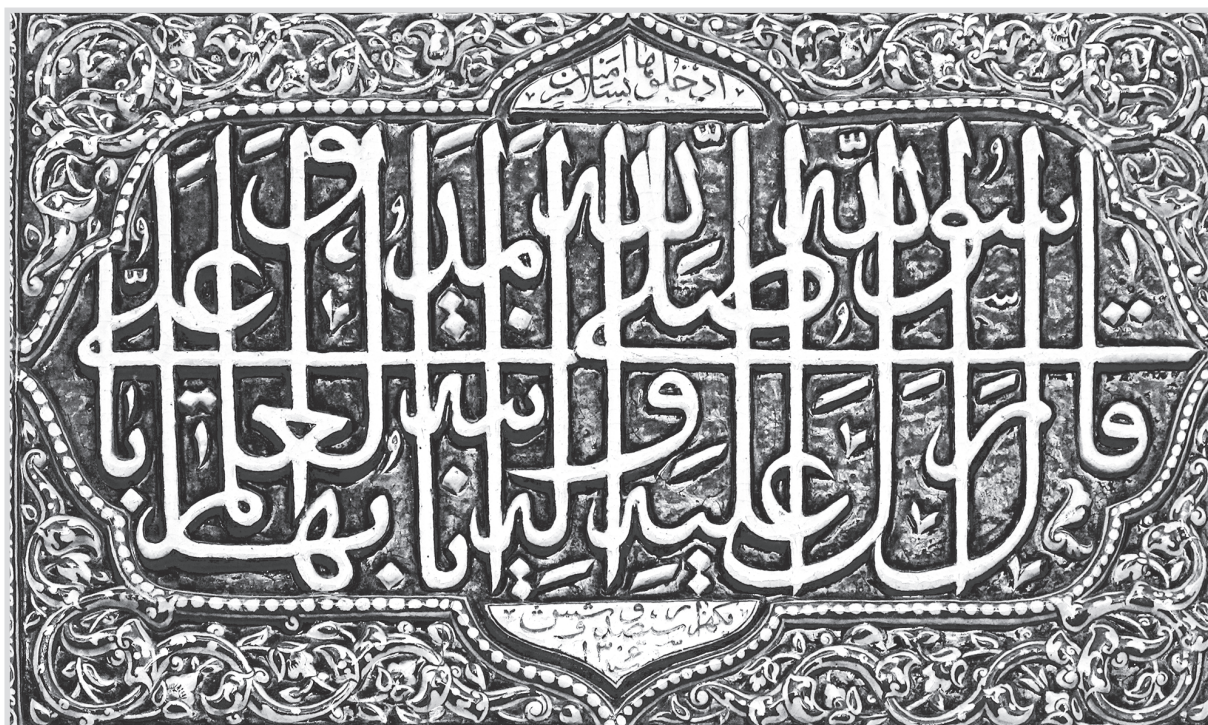 ادخلوها بسلام آمنين
قال رسول الله صلى الله عليه وآله أنا مدينة العلم وعلي بابها
يكهزار و سيصد و شش